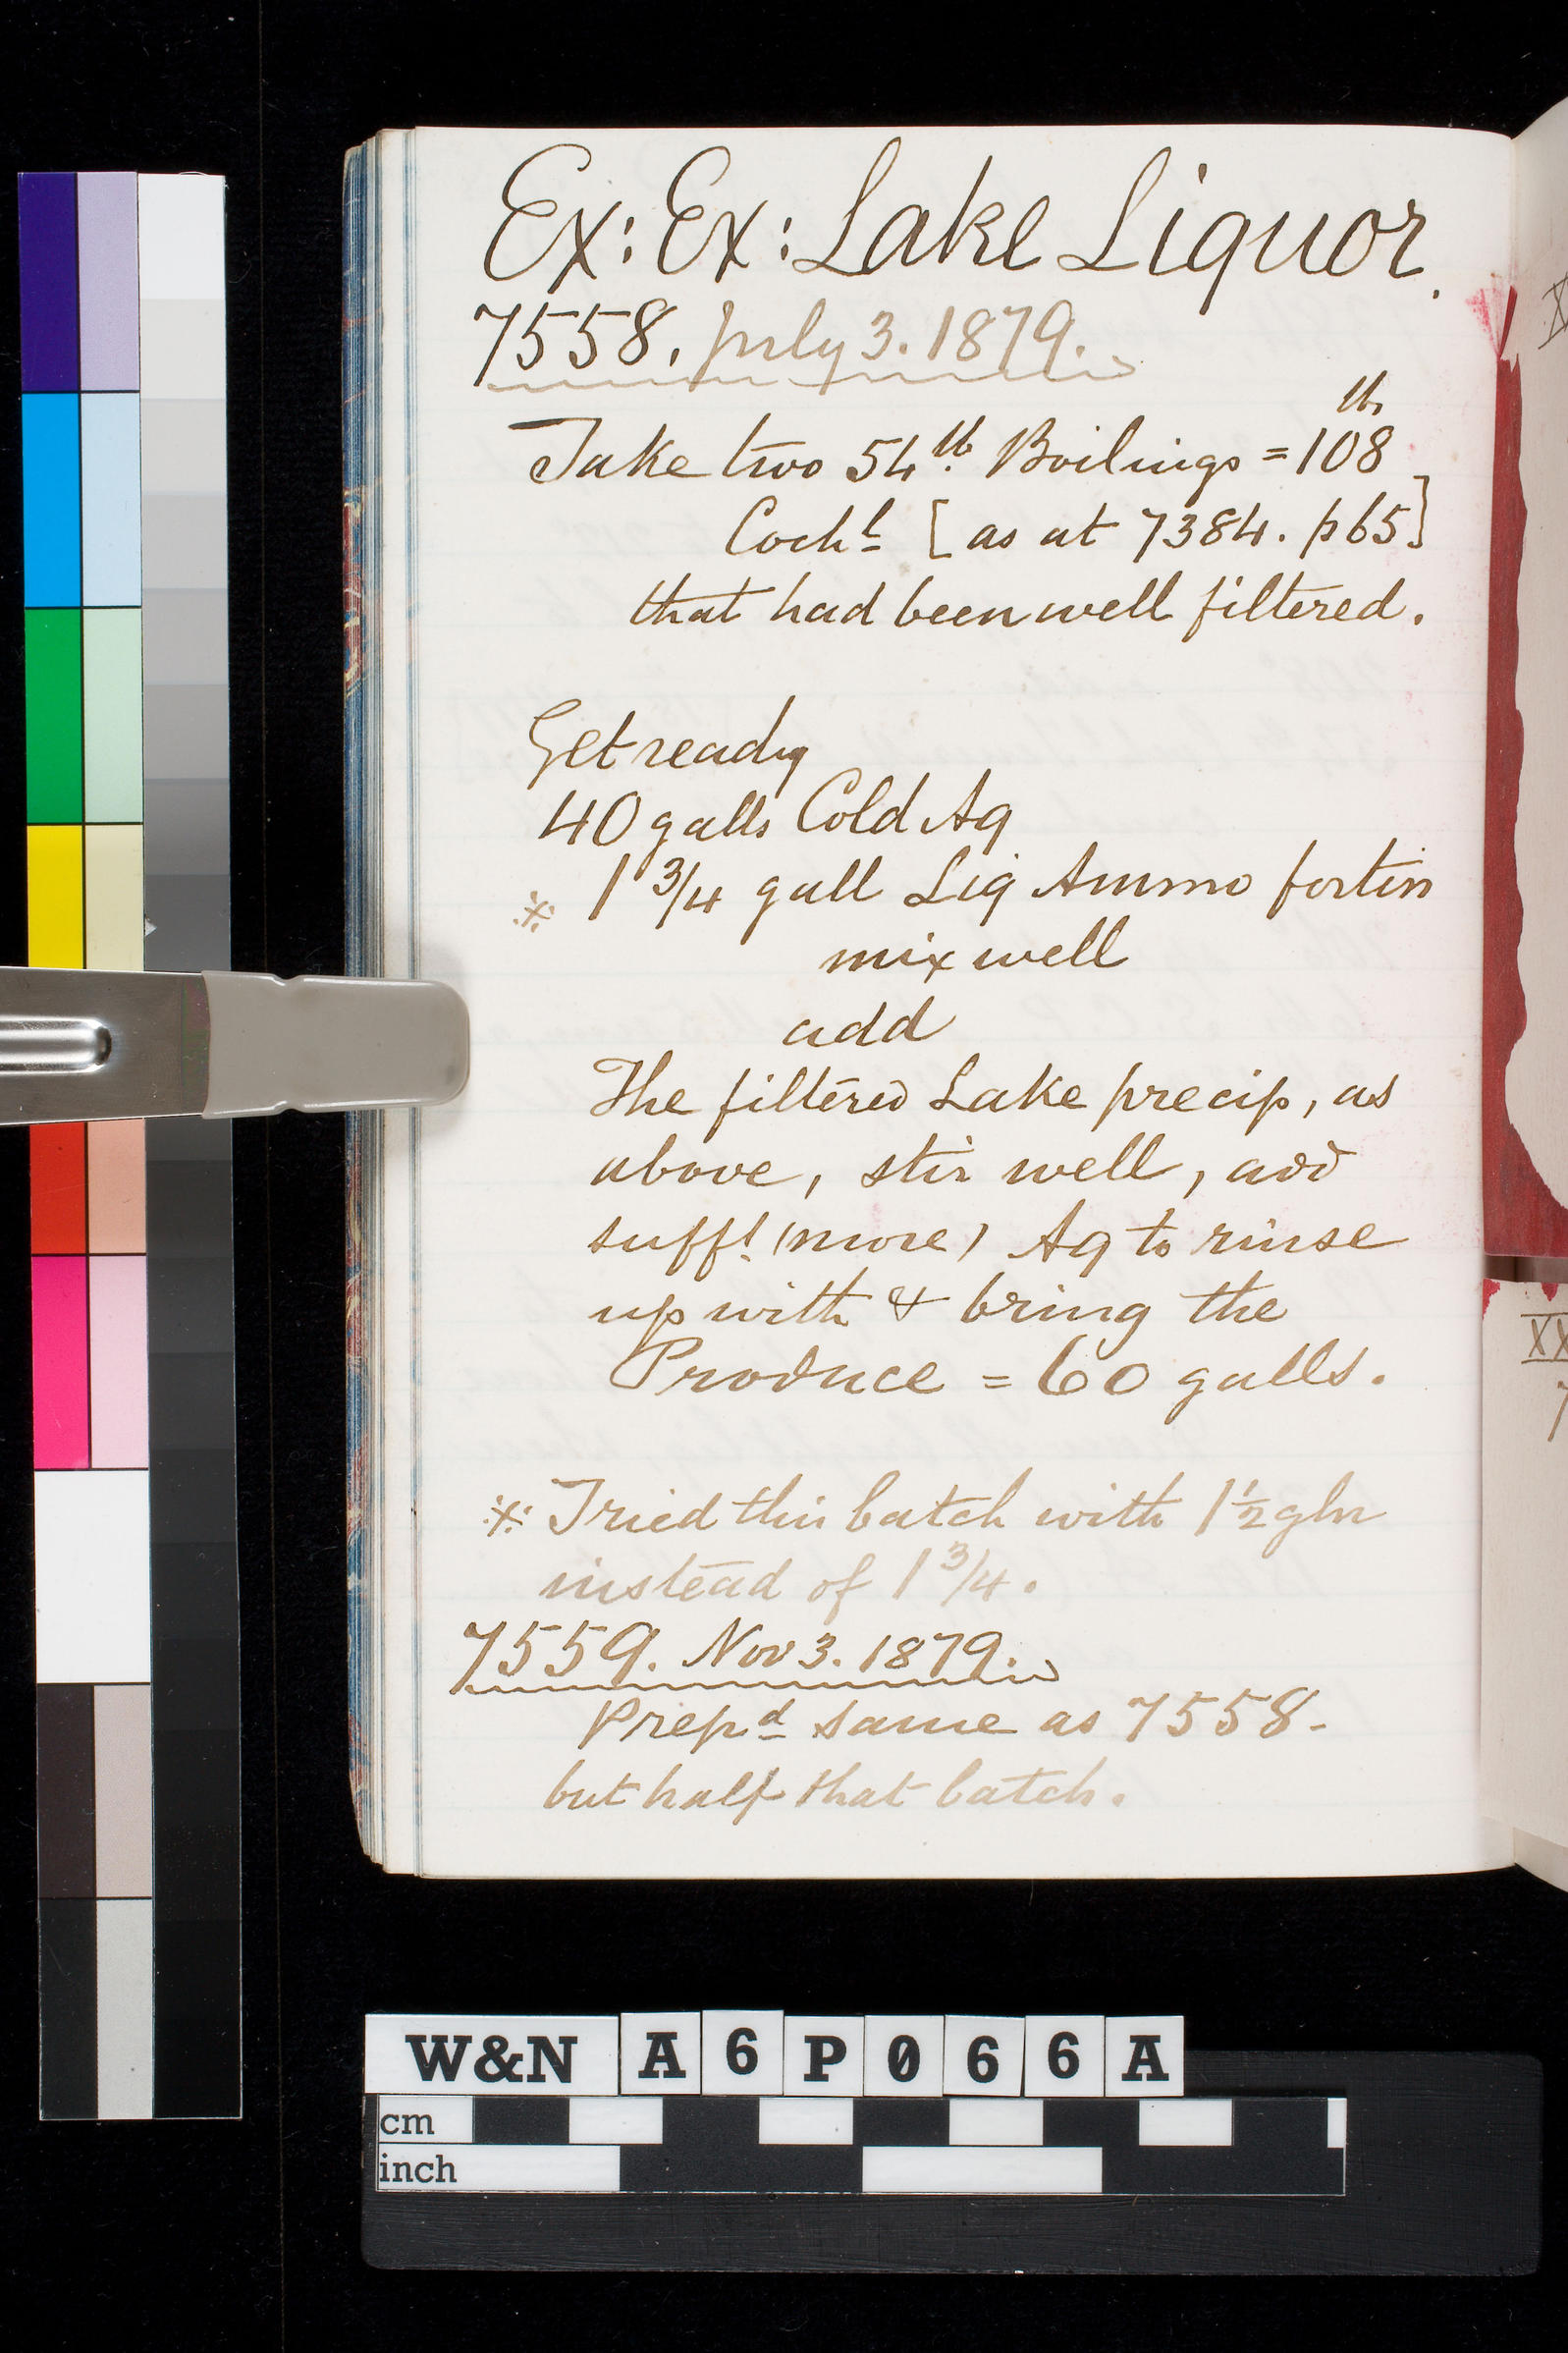 Ex: Ex: Lake Liquor.
7558. July 3. 1879.
Take two 54 lb. Boilings = 108 lb.
Cochl [as at 7384. p65]
that had been well filtered.
Get ready
40 galls Cold Aq
※ 1 3/4 gall Liq Ammo fortis
mix well
add
The filtered Lake precip, as
above, stir well, add
sufft (more) Aq to rinse
up with & bring the
Produce = 60 galls.
※ Tried this batch with 1 1/2 glns
instead of 1 3/4.
7559. Nov 3. 1879.
Prepd same as 7558-
but half that batch.
X
XX
7
W&N A6P066A
cm
inch